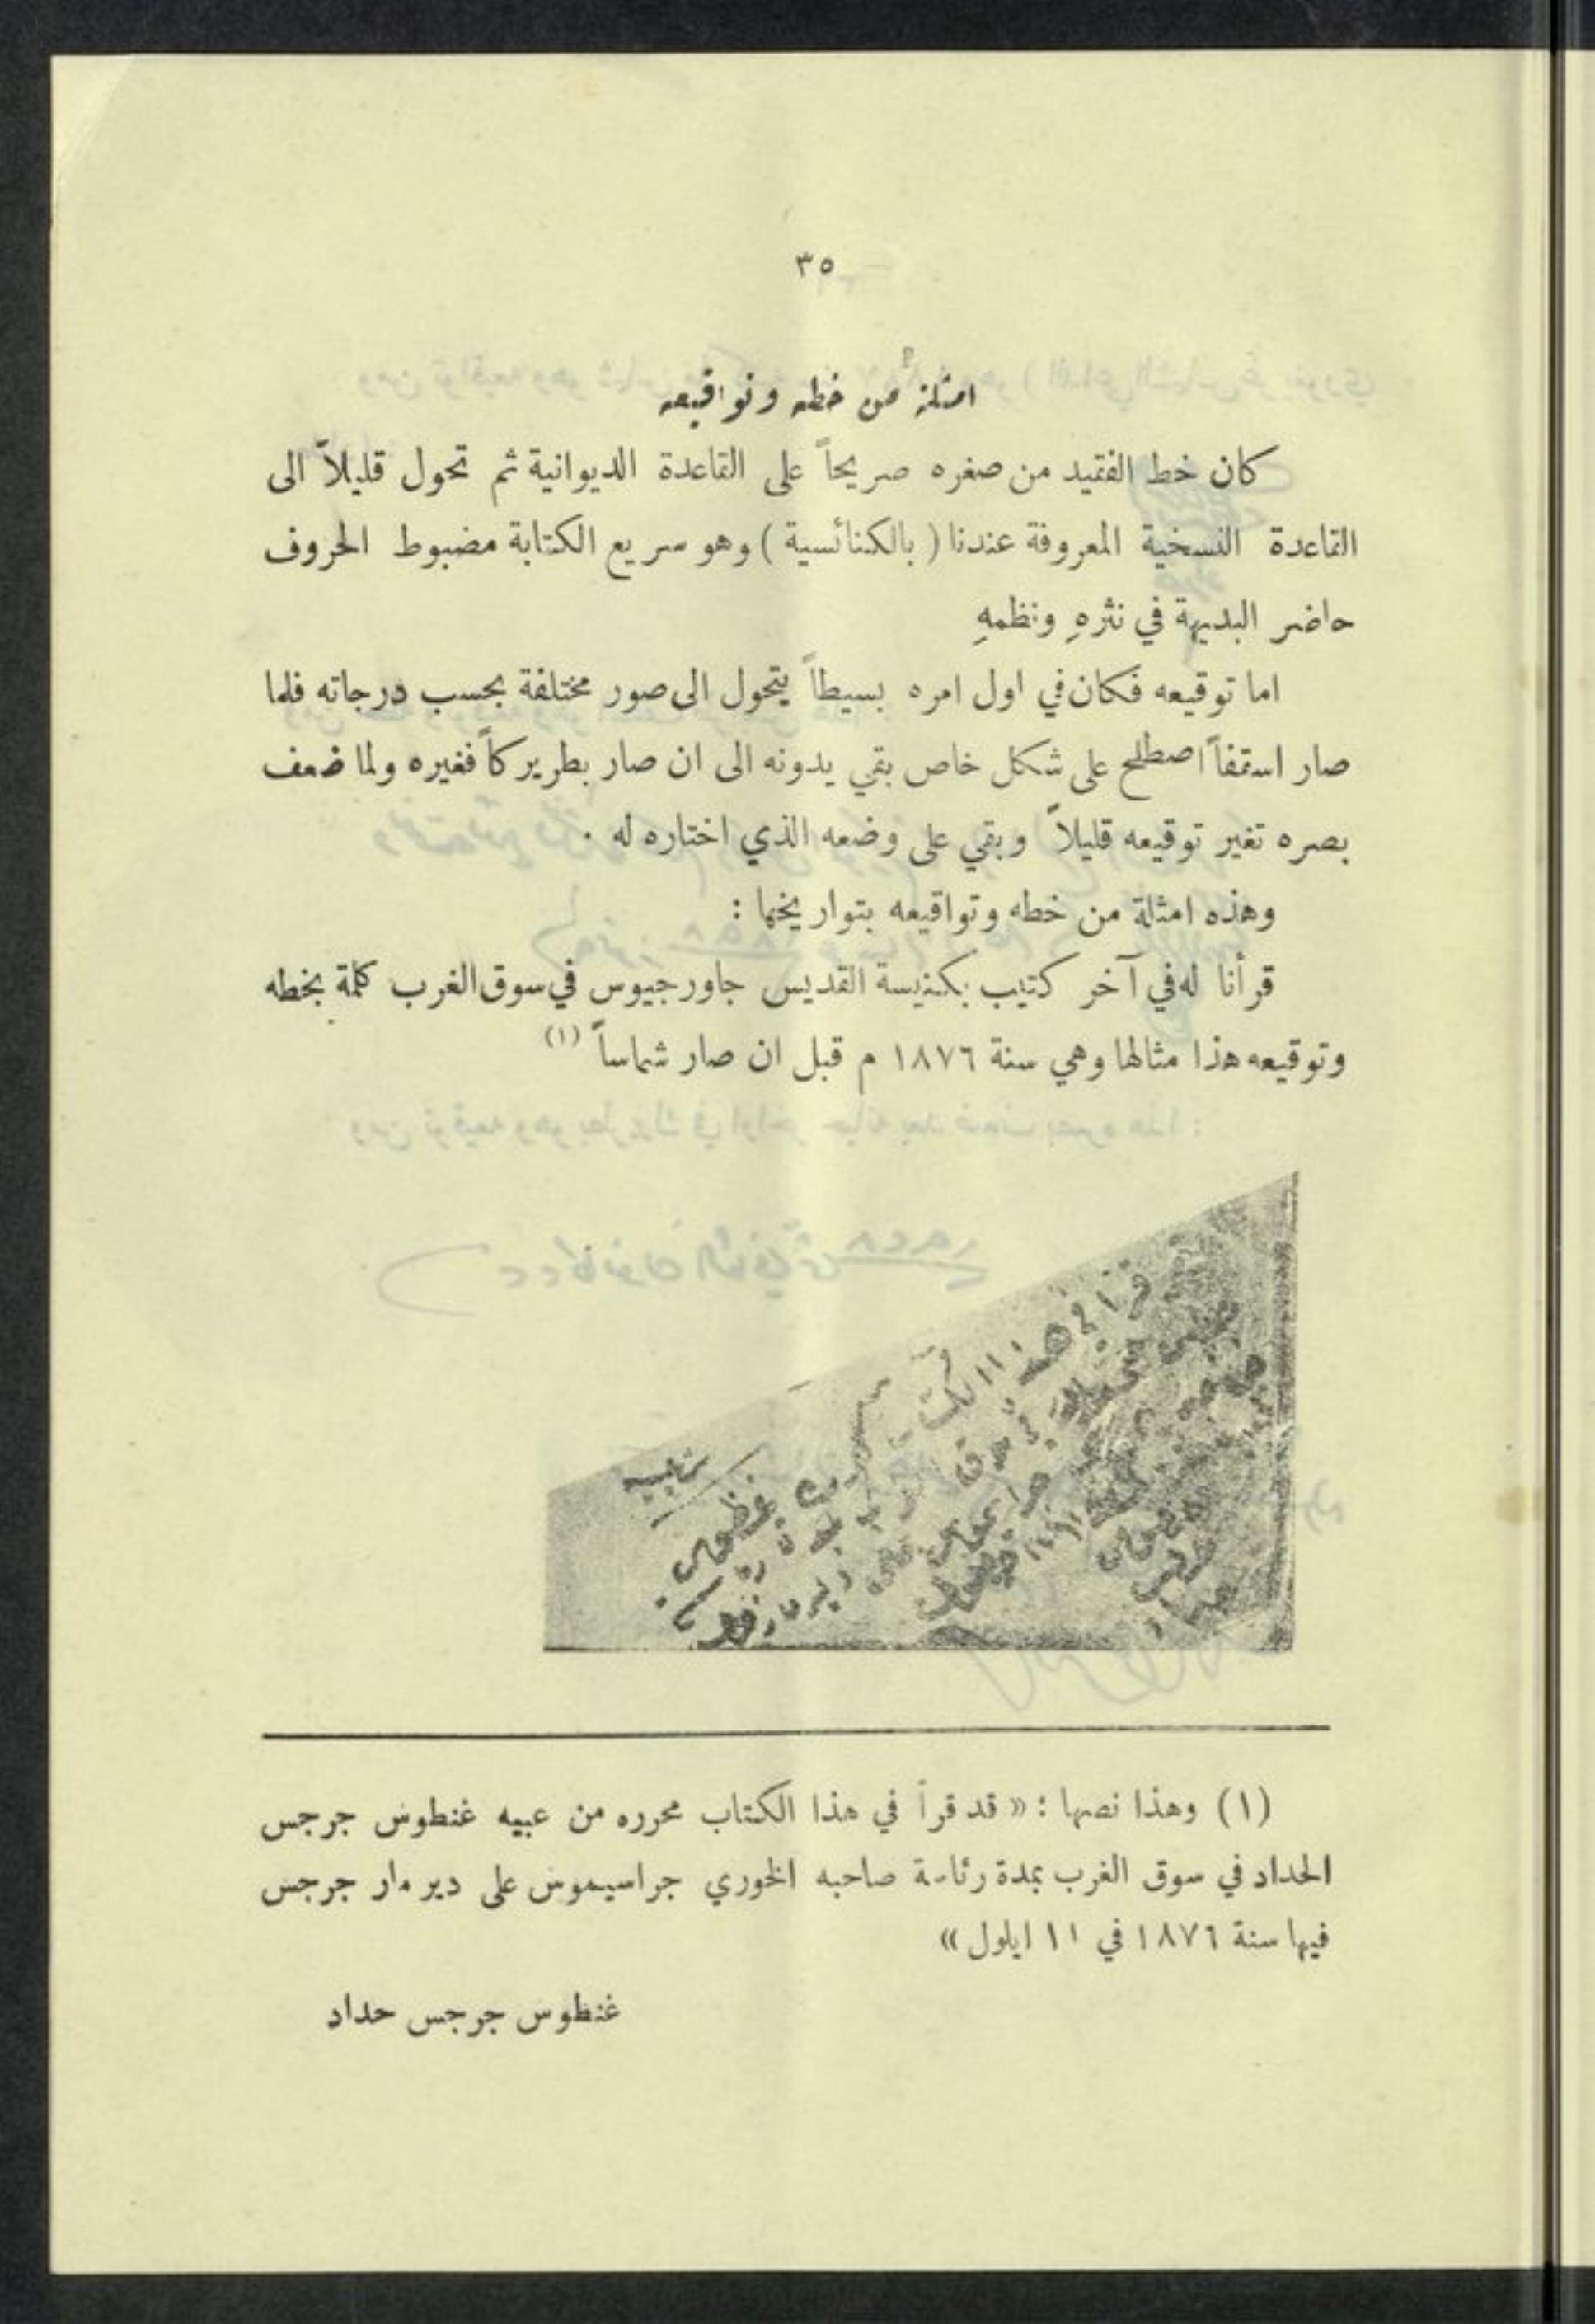 ٣٥
امثلة من خطه وتواقيعه
كان خط الفقيد من صغره صريحاً على القاعدة الديوانية ثم تحول قليلاً الى
القاعدة النسخية المعروفة عندنا ( بالكنائسية ) وهو سريع الكتابة مضبوط الحروف
حاضر البديهة في نثرهِ ونظمهِ
اما توقيعه فكان في اول امره بسيطاً يتحول الى صور مختلفة بحسب درجاته فلما
صار اسقفاً اصطلح على شكل خاص بقي يدونه الى ان صار بطريركاً فغيره ولما ضعف
بصره تغير توقيعه قليلاً وبقي على وضعه الذي اختاره له .
وهذه امثلة من خطه وتواقيعه بتواريخها :
قرأنا له في آخر كتيب بكنيسة القديس جاورجيوس في سوق الغرب كلمة بخطه
وتوقيعه هذا مثالها وهي سنة ١٨٧٦ م قبل ان صار شماساً (١)
قرا في هذا الكتا
(١) وهذا نصها : « قد قرأ في هذا الكتاب محرره من عبيه غنطوس جرجس
الحداد في سوق الغرب بمدة رئاسة صاحبه الخوري جراسيموس على دير مار جرجس
فيها سنة ١٨٧٦ في ١١ ايلول »
غنطوس جرجس حداد